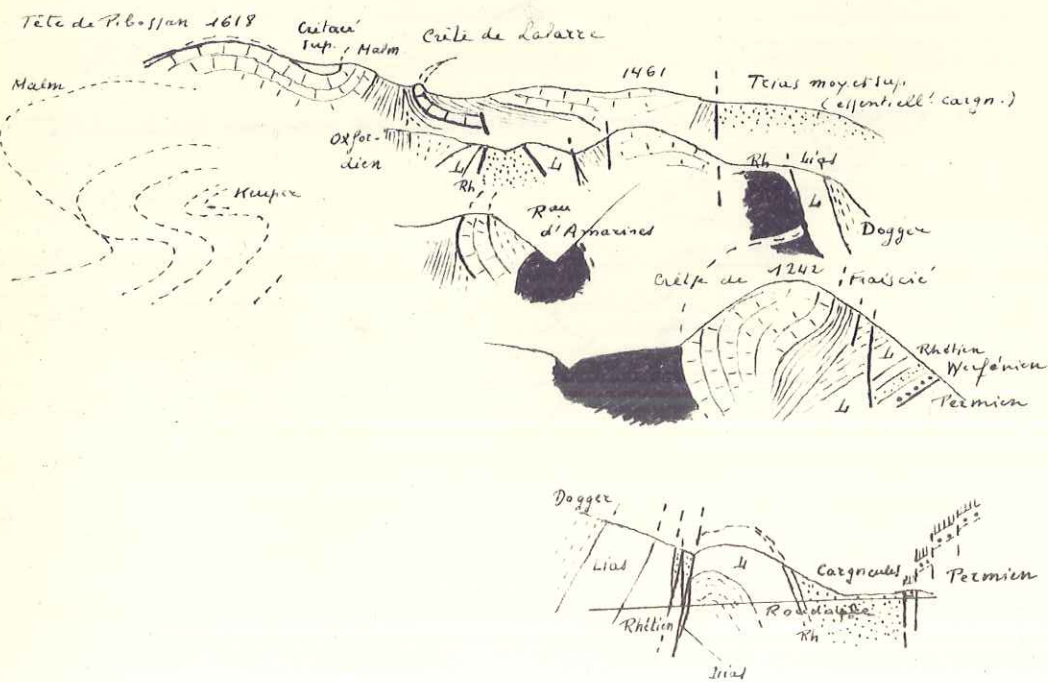 Tête de Pibossan 1618
Crétacé
sup.
Malm
Crête de Lalarre
1461
Trias moy. et sup.
(essentiell! cargn.)
Malm
Oxfor-
dien
L
Rh
L
Rh
Lias
L
Dogger
Keuper
Rau
d'Amarines
Crête de
1242
Fraiscié
L
Rhétien
Werfénien
L
Permien
Dogger
Lias
L
Cargneules
Permien
Rhétien
Rh
Lias